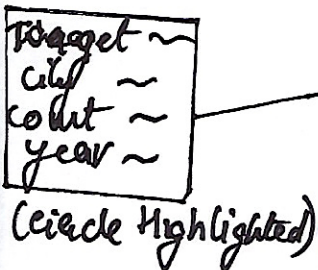 Target ~
city ~
count ~
year ~
(circle Highlighted)